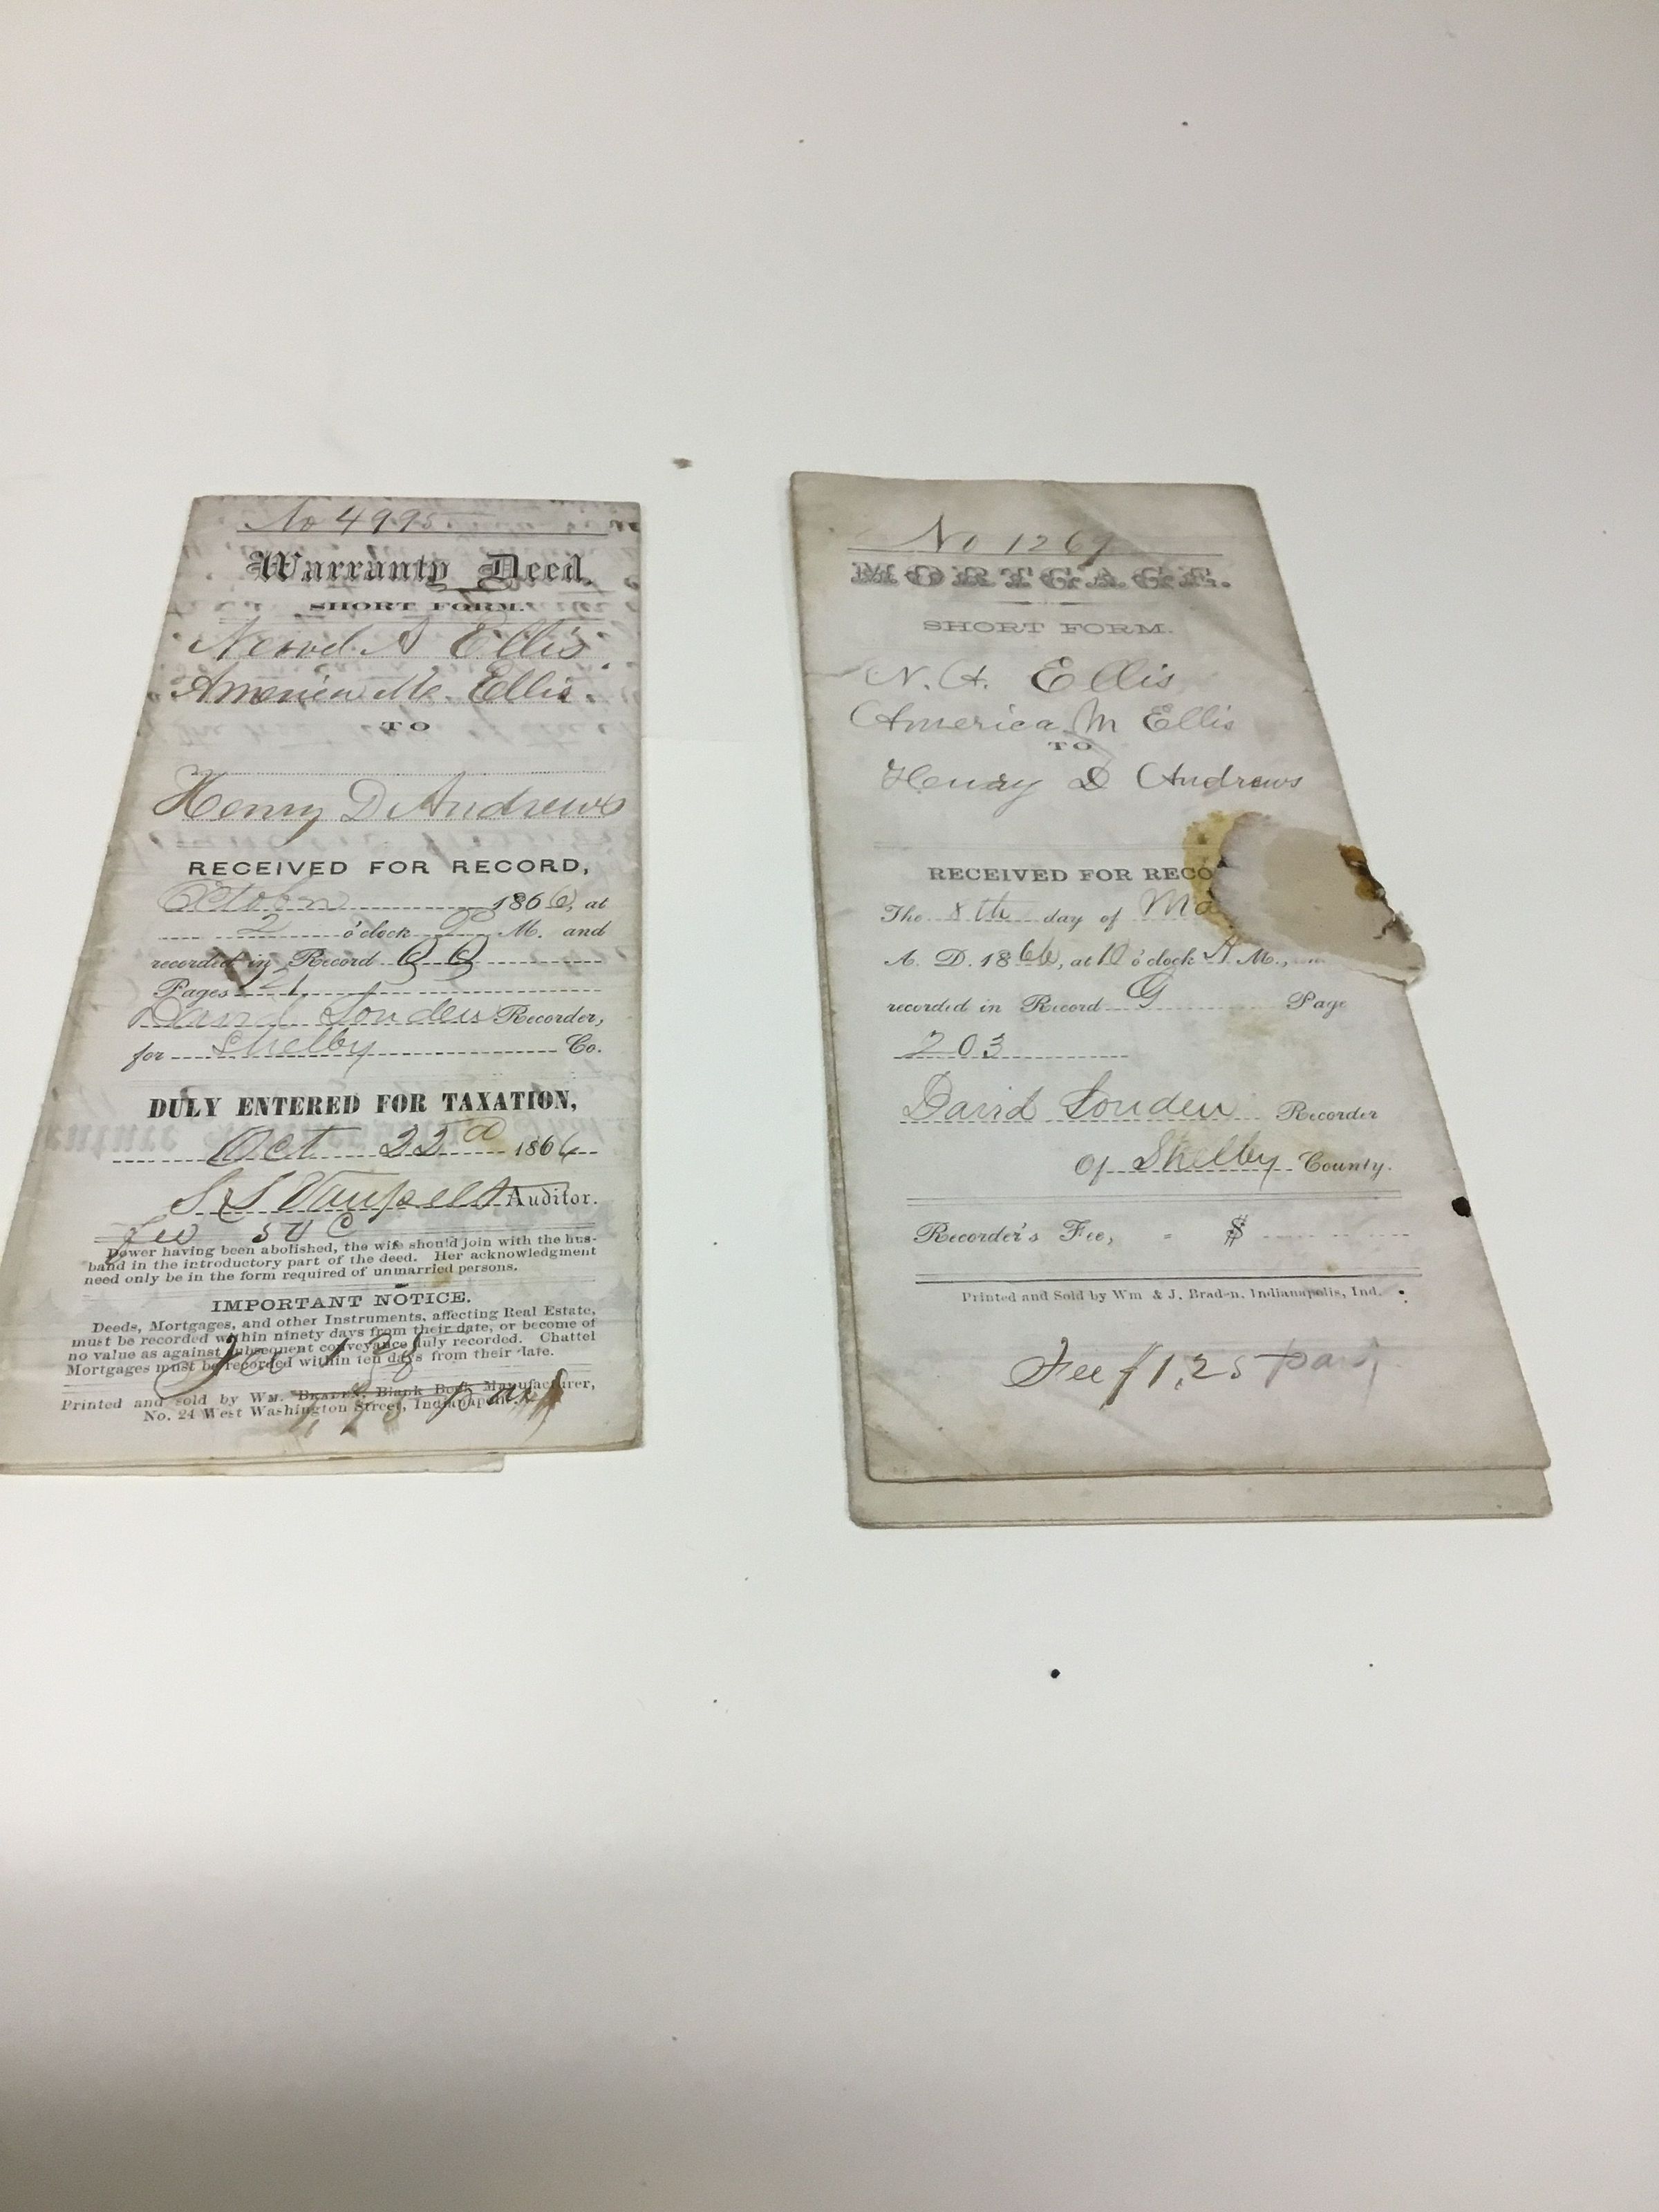 No 4995
Warranty Deed.
SHORT FORM.
A Ellis
America M. Ellis.
TO
Henry D Andrews
RECEIVED FOR RECORD,
October 1866, at
2 o'clock P M. and
recorded in Record
Pages 21
David Louden Recorder,
for Shelby Co.
DULY ENTERED FOR TAXATION,
Oct 22d 1866
Auditor.
Fee 50 C
Dower having been abolished, the wife should join with the hus-
band in the introductory part of the deed. Her acknowledgment
need only be in the form required of unmarried persons.
IMPORTANT NOTICE.
Deeds, Mortgages, and other Instruments, affecting Real Estate,
must be recorded within ninety days from their date, or become of
no value as against subsequent conveyance duly recorded. Chattel
Mortgages must be recorded within ten days from their date.
Printed and sold by WM. BRADEN, Blank Book Manufacturer,
No. 24 West Washington Street, Indianapolis.
No 1269
MORTGAGE.
SHORT FORM.
N. A. Ellis
America M Ellis
TO
Henry D Andrews
RECEIVED FOR RECO
The 8th day of Ma
A. D. 1866, at 10 o'clock A M.,
recorded in Record G Page
203
David Louden Recorder
Of Shelby County.
Recorder's Fee, - $
Printed and Sold by Wm & J. Braden, Indianapolis, Ind.
Fee $1.25 paid